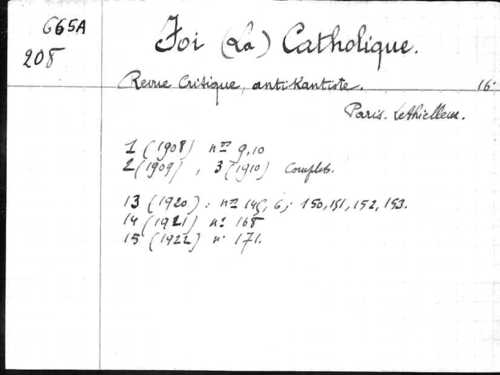 665A
208
Foi (La) Catholique.
Revue Critique, anti-Kantiste. 16°
Paris. Lethielleux.
1 (1908) nos 9, 10
2 (1909), 3 (1910) Complets.
13 (1920) : nos 145, 6; 150, 151, 152, 153.
14 (1921) n° 168
15 (1922) n° 171.